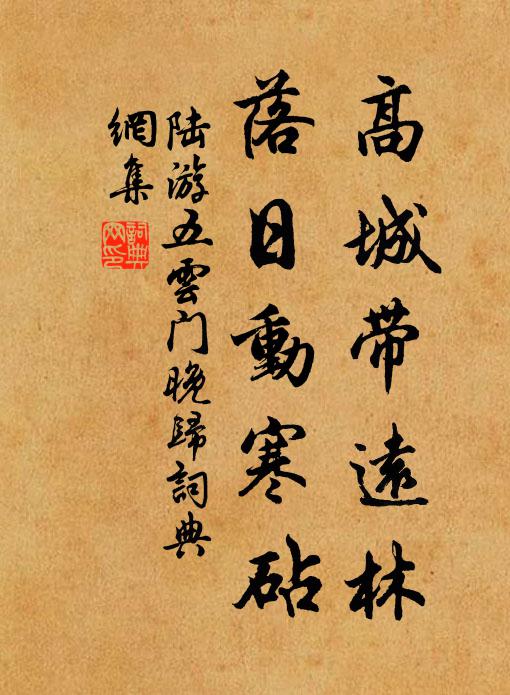 高城带遠林
落日動寒砧
陆游五雲门晚歸詞典
網集
詞典
网印